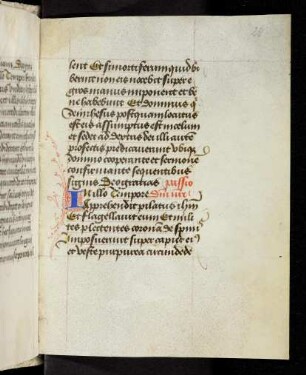 lent Et si mortiferum quid bi
berint non eis nocebit super e
gros manus imponent et be
ne habebunt Et dominus q
dem ihesus postquam locutus
est eis assumptus est in celum
et sedet a dextris dei illi autem
profecti predicaverunt ubique
domino cooperante et sermonem
confirmante sequentibus
signis Deo gratias passio
In illo tempore
Apprehendit pilatus ihm
et flagellavit eum Et mili
tes plectentes coronam de spinis
imposuerunt super caput ei
et veste purpurea circumdede